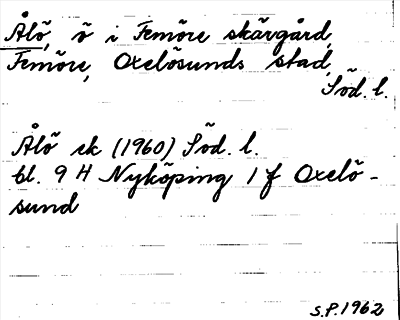 Ålö, ö i Femöre skärgård,
Femöre, Oxelösunds stad,
Söd. l.
Ålö ek (1960) Söd. l.
bl. 9 H Nyköping 1 f Oxelö-
sund
S.P. 1962